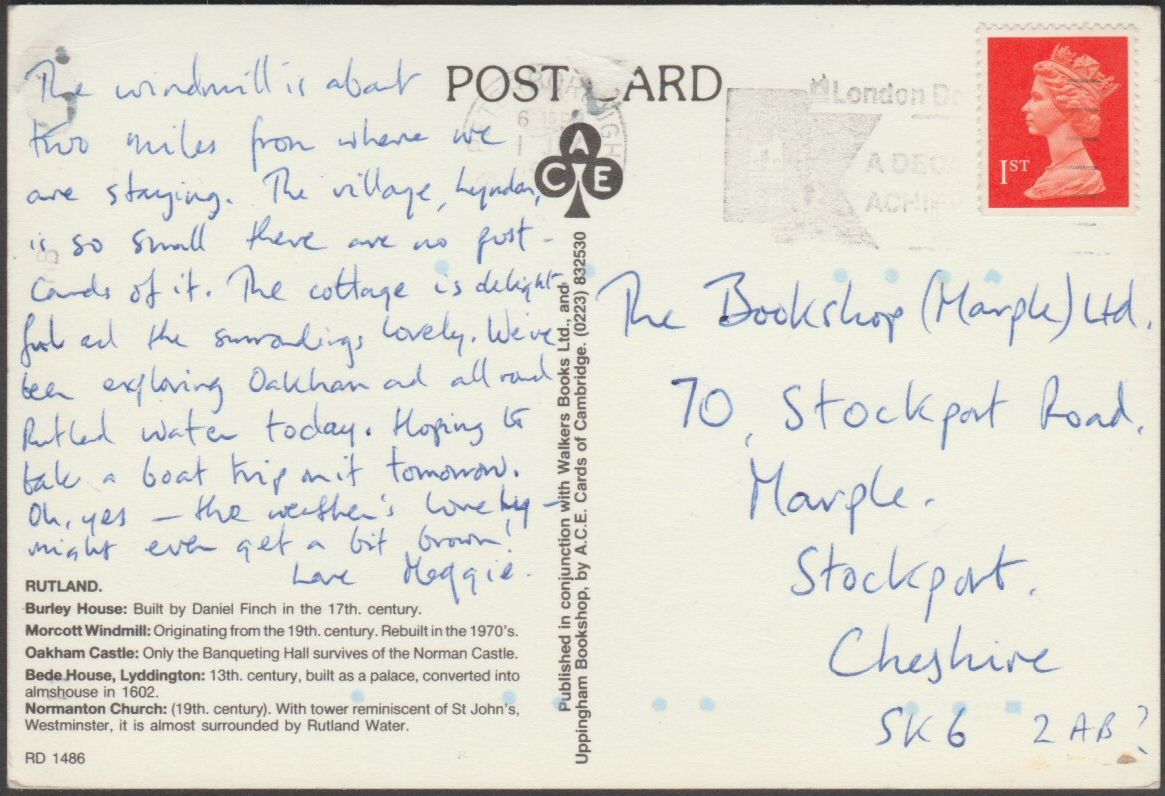 POST CARD
The windmill is about
two miles from where we
are staying. The village, Lyndon,
is so small there are no post-
cards of it. The cottage is delight-
ful and the surroundings lovely. We've
been exploring Oakham and all round
Rutland Water today. Hoping to
take a boat trip on it tomorrow.
Oh, yes – the weather's lovely –
might even get a bit brown!
Love Meggie.
RUTLAND.
Burley House: Built by Daniel Finch in the 17th. century.
Morcott Windmill: Originating from the 19th. century. Rebuilt in the 1970's.
Oakham Castle: Only the Banqueting Hall survives of the Norman Castle.
Bede House, Lyddington: 13th. century, built as a palace, converted into
almshouse in 1602.
Normanton Church: (19th. century). With tower reminiscent of St John's,
Westminster, it is almost surrounded by Rutland Water.
RD 1486
ACE
Published in conjunction with Walkers Books Ltd., and
Uppingham Bookshop, by A.C.E. Cards of Cambridge. (0223) 832530
London
A DEC
ACHI
1ST
The Bookshop (Marple) Ltd.
70, Stockport Road,
Marple.
Stockport.
Cheshire
SK6 2AB?